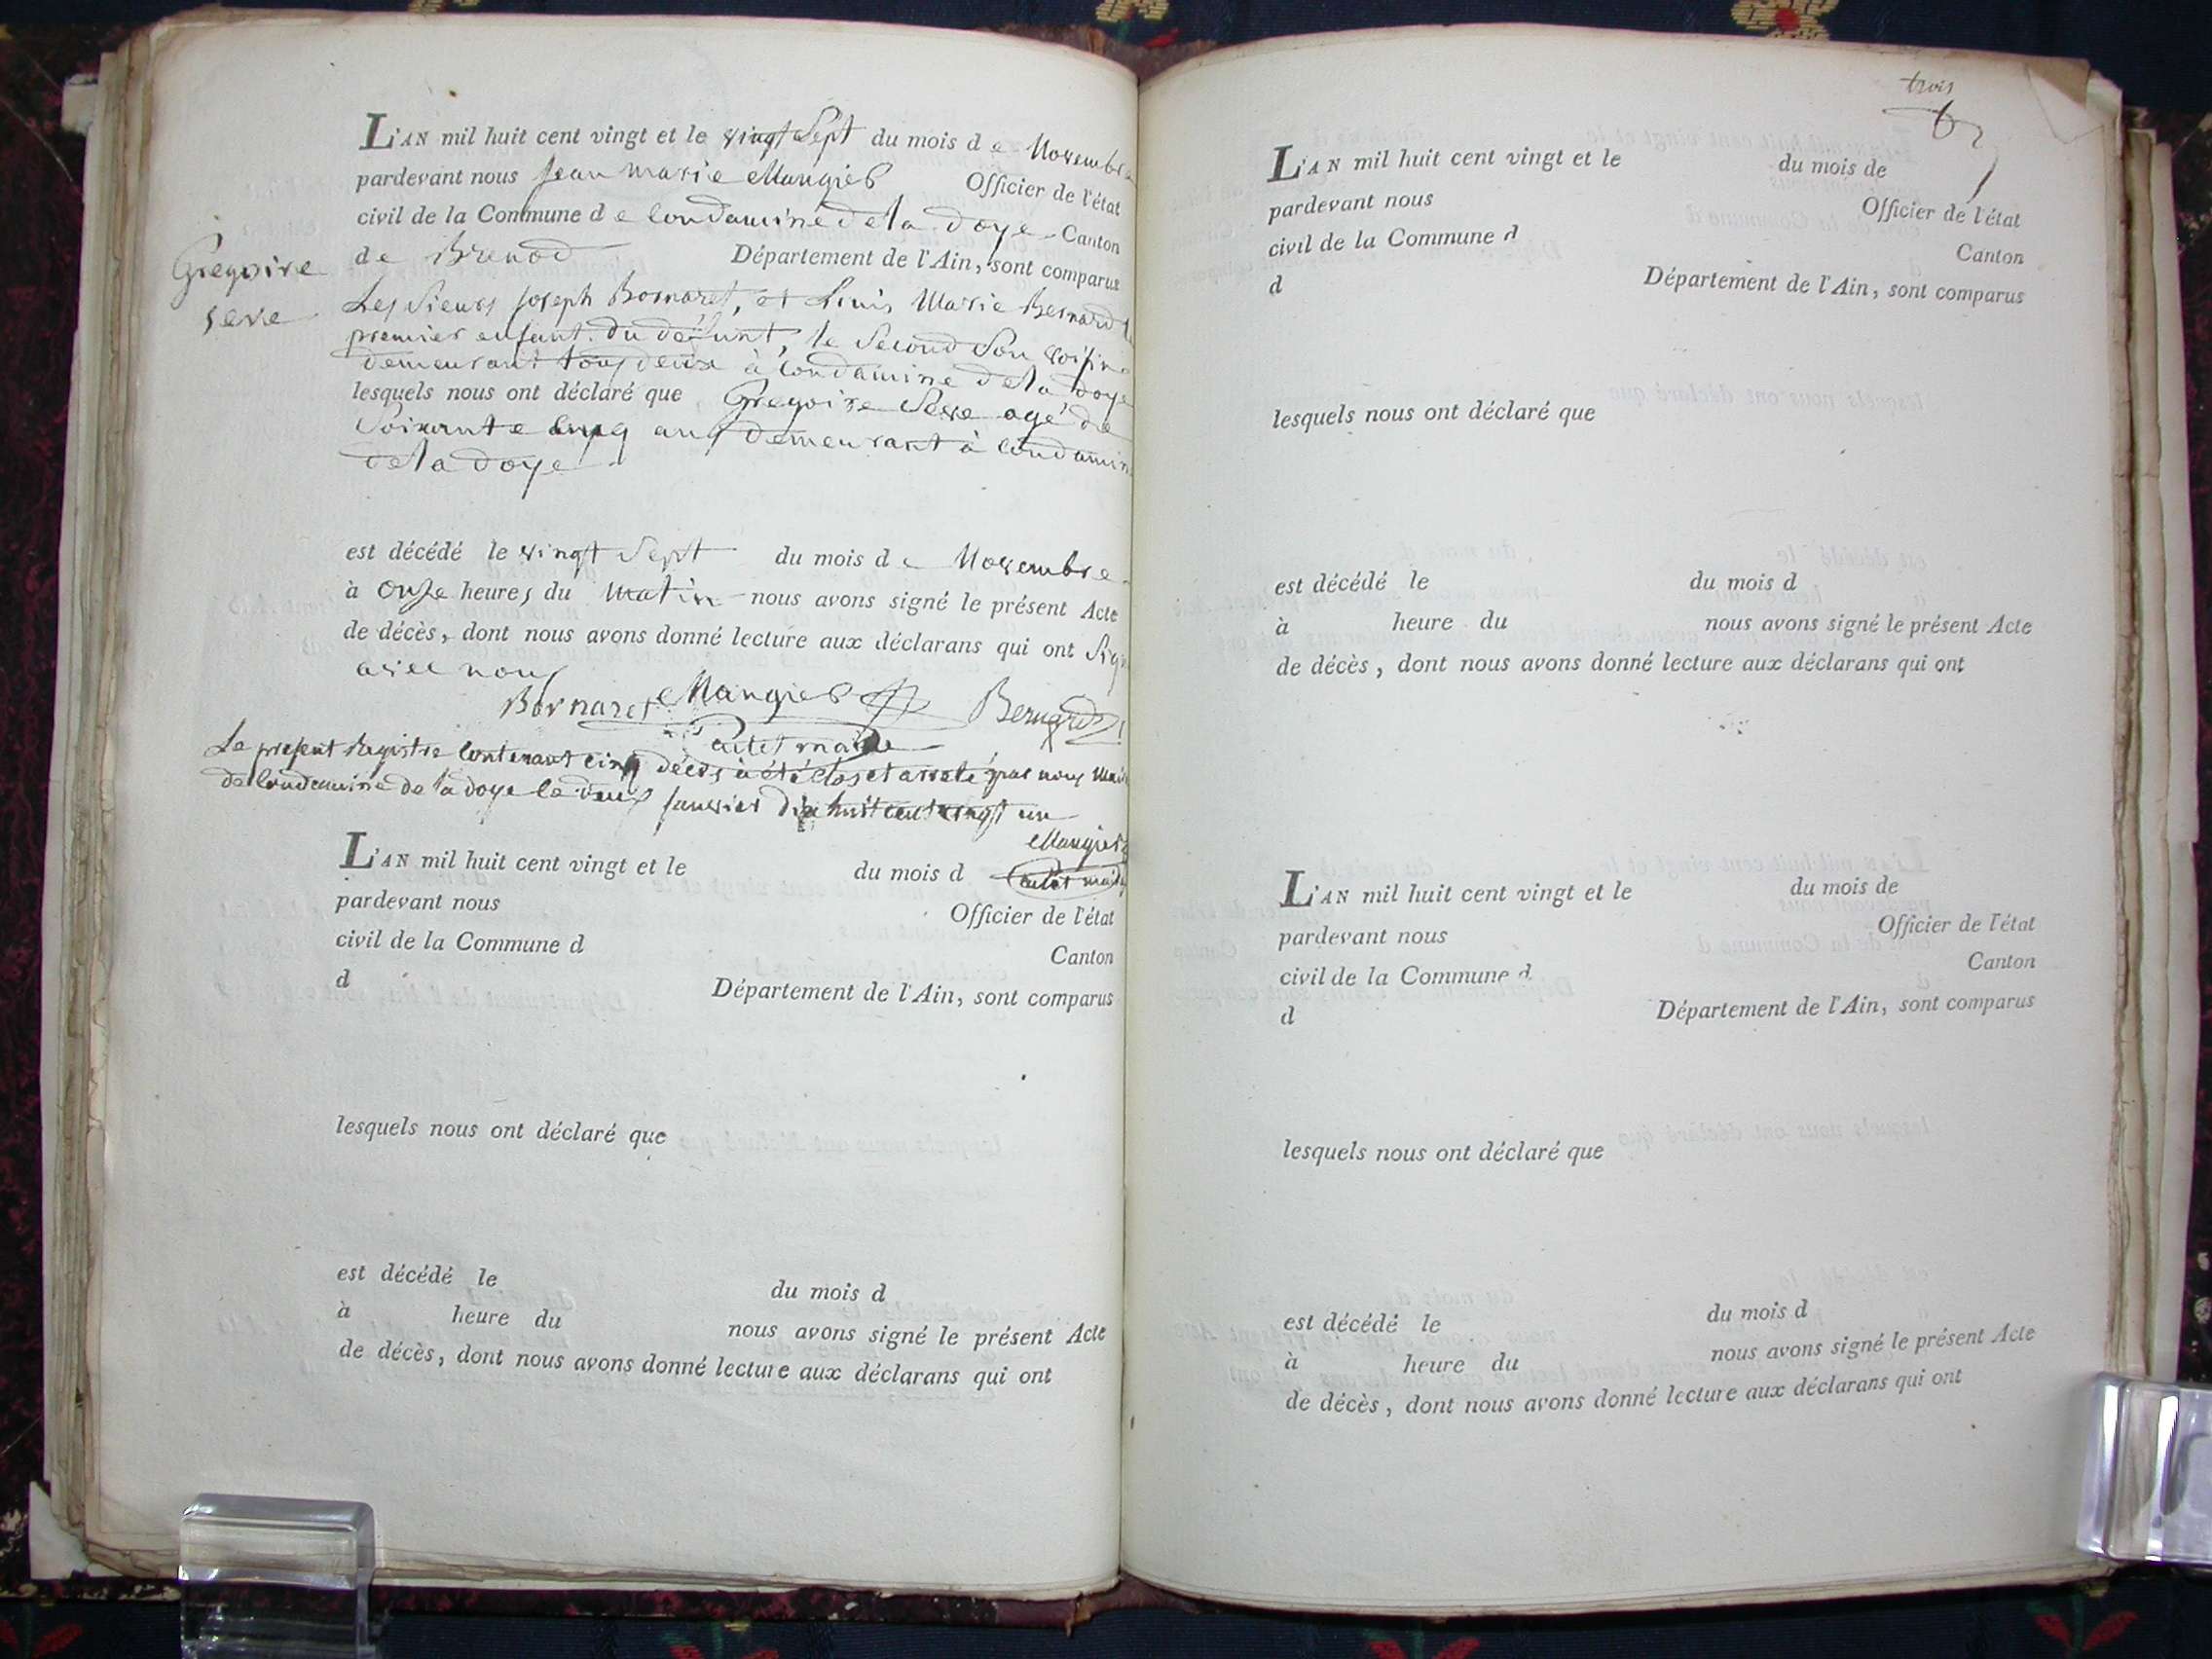 L'AN mil huit cent vingt et le vingt Sept du mois d e Novembre
pardevant nous Jean marie Maugier Officier de l'état
civil de la Commune d e Condamine de la doye Canton
de Brenod Département de l'Ain, sont comparus
Gregoire
seve
Les Sieurs joseph Bornaret, et Louis Marie Bernard
premier enfant du defunt, le Second Son voisin
demeurant tous deux à Condamine de la doye
lesquels nous ont déclaré que Gregoire Seve agé de
Soixante cinq ans demeurant à Condamin
de la doye
est décédé le vingt Sept du mois d e Novembre
à onze heures du Matin nous avons signé le présent Acte
de décès, dont nous avons donné lecture aux déclarans qui ont Sign
avec nous
Bornaret Maugier Bernard
maire
Le présent Registre Contenant cinq décès à été clos et arreté par nous Mair
de Condamine de la doye le deux janvier dix huit cent vingt un
Maugier
L'AN mil huit cent vingt et le du mois d
pardevant nous Officier de l'état
civil de la Commune d Canton
d Département de l'Ain, sont comparus
lesquels nous ont déclaré que
est décédé le du mois d
à heure du nous avons signé le présent Acte
de décès, dont nous avons donné lecture aux déclarans qui ont
trois
L'AN mil huit cent vingt et le du mois de
pardevant nous Officier de l'état
civil de la Commune d Canton
d Département de l'Ain, sont comparus
lesquels nous ont déclaré que
est décédé le du mois d
à heure du nous avons signé le présent Acte
de décès, dont nous avons donné lecture aux déclarans qui ont
L'AN mil huit cent vingt et le du mois de
pardevant nous Officier de l'état
civil de la Commune d Canton
d Département de l'Ain, sont comparus
lesquels nous ont déclaré que
est décédé le du mois d
à heure du nous avons signé le présent Acte
de décès, dont nous avons donné lecture aux déclarans qui ont